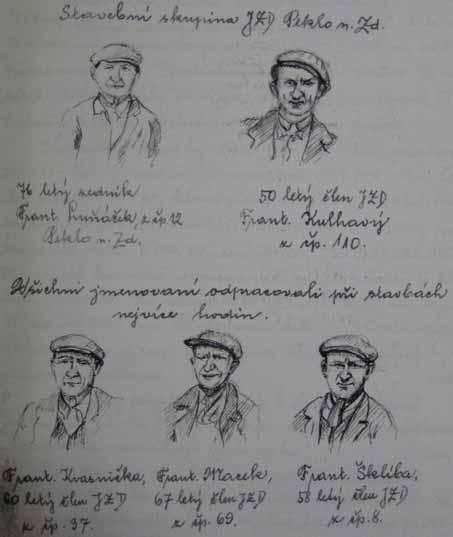 Stavební skupina JZD Peklo n. Zd.
76 letý zedník
Frant. Luňáček, z čp. 12
Peklo n. Zd.
50 letý člen JZD
Frant. Kulhavý
z čp. 110.
Všichni jmenovaní odpracovali při stavbách
nejvíce hodin.
Frant. Kvasnička,
60 letý člen JZD
z čp. 37.
Frant. Macek,
67 letý člen JZD
z čp. 69.
Frant. Škliba,
58 letý člen JZD
z čp. 8.